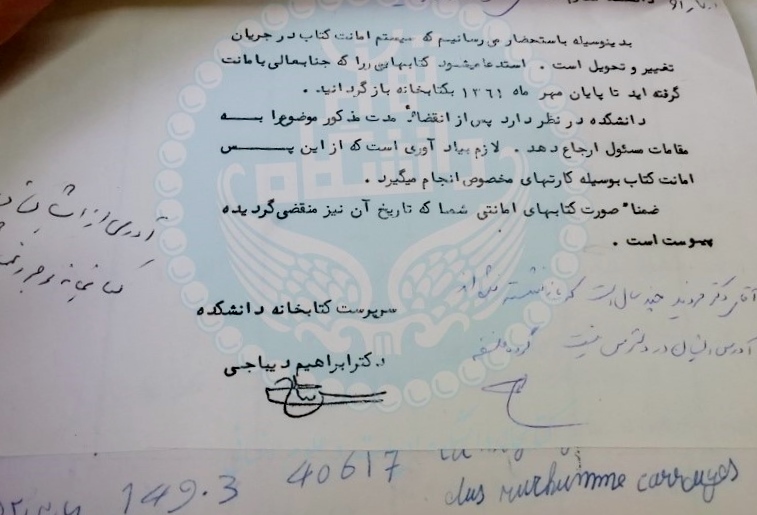 بدینوسیله باستحضار می رسانیم که سیستم امانت کتاب در جریان
تغییر و تحویل است . استدعا میشود کتابهایی را که جنابعالی بامانت
گرفته اید تا پایان مهر ماه ۱۳۶۱ بکتابخانه بازگردانید .
دانشکده در نظر دارد پس از انقضاء مدت مذکور موضوع را بــه
مقامات مسئول ارجاع دهد . لازم بیاد آوری است که از این پــس
امانت کتاب بوسیله کارتهای مخصوص انجام میگیرد .
ضمناً صورت کتابهای امانتی شما که تاریخ آن نیز منقضی گردیده
پیوست است .
آقای دکتر چند سال است که بازنشسته
آدرس ایشان در دفتر نیست گروه فلسفه
سرپرست کتابخانه دانشکده
دکتر ابراهیم دیباجی
149.3 40617